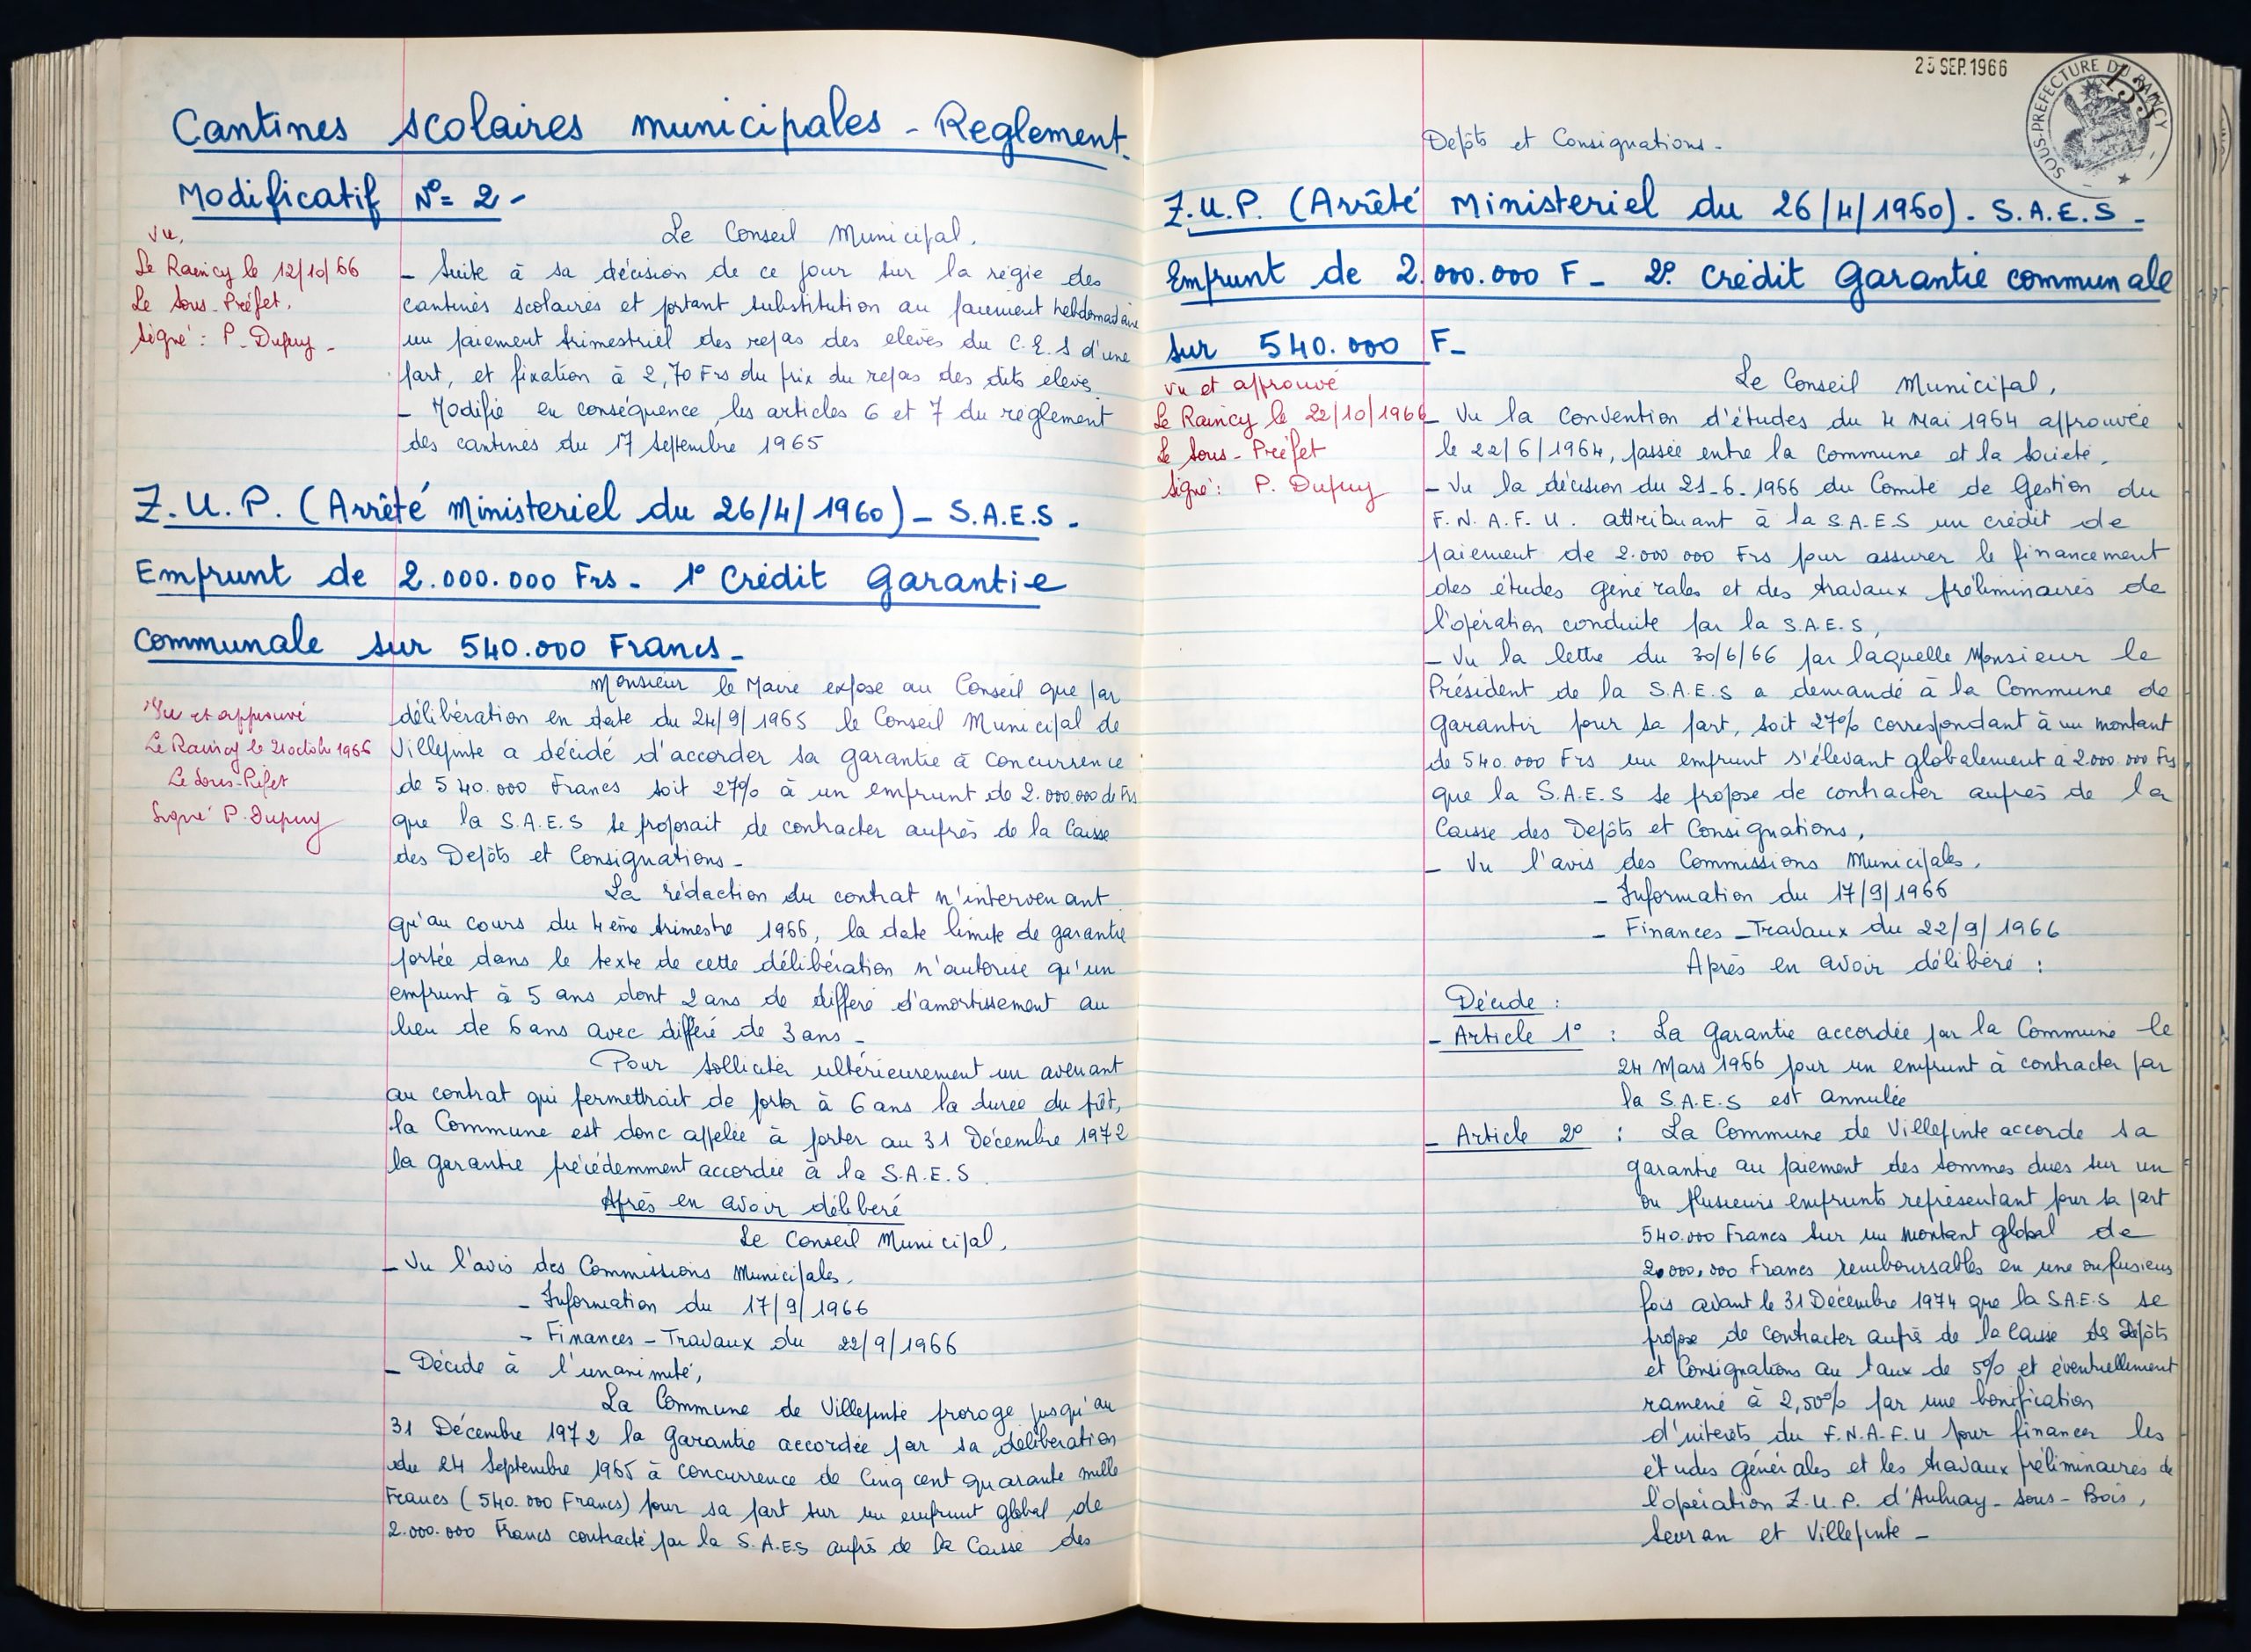 Cantines scolaires municipales - Reglement.
Modificatif N°= 2 -
Vu,
Le Raincy le 12/10/66
Le Sous-Préfet,
Signé : P. Dupuy -
Le Conseil Municipal,
- Suite à sa décision de ce jour sur la régie des
cantines scolaires et portant substitution au paiement hebdomadaire
un paiement trimestriel des repas des élèves du C.E.S d'une
part, et fixation à 2,70 Frs du prix du repas des dits élèves
- Modifie en conséquence les articles 6 et 7 du règlement
des cantines du 17 Septembre 1965
Z.U.P. (Arrêté Ministeriel du 26/4/1960) - S.A.E.S.
Emprunt de 2.000.000 Frs - 1° Crédit Garantie
Communale sur 540.000 Francs -
Vu et approuvé
Le Raincy le 21 octobre 1966
Le Sous-Préfet
Signé P. Dupuy
Monsieur le Maire expose au Conseil que par
délibération en date du 24/9/1965 le Conseil Municipal de
Villepinte a décidé d'accorder sa garantie à concurrence
de 540.000 Francs soit 27% à un emprunt de 2.000.000 de Frs
que la S.A.E.S se proposait de contracter auprès de la Caisse
des Depôts et Consignations -
La rédaction du contrat n'intervenant
qu'au cours du 4ème trimestre 1966, la date limite de garantie
portée dans le texte de cette délibération n'autorise qu'un
emprunt à 5 ans dont 2 ans de différé d'amortissement au
lieu de 6 ans avec différé de 3 ans -
Pour solliciter ultérieurement un avenant
au contrat qui permettrait de porter à 6 ans la durée du prêt,
la Commune est donc appelée à porter au 31 Décembre 1972
la garantie précédemment accordée à la S.A.E.S.
Après en avoir délibéré
Le Conseil Municipal,
- Vu l'avis des Commissions Municipales,
- Information du 17/9/1966
- Finances - Travaux du 22/9/1966
- Décide à l'unanimité,
La Commune de Villepinte proroge jusqu'au
31 Décembre 1972 la garantie accordée par sa délibération
du 24 Septembre 1965 à concurrence de Cinq cent quarante mille
Francs (540.000 Francs) pour sa part sur un emprunt global de
2.000.000 Francs contracté par la S.A.E.S auprès de la Caisse des
23 SEP. 1966
SOUS-PREFECTURE DU RAINCY
133
Depôts et Consignations -
Z.U.P. (Arrêté Ministeriel du 26/4/1960). S.A.E.S -
Emprunt de 2.000.000 F - 2° Crédit Garantie communale
sur 540.000 F -
Vu et approuvé
Le Raincy le 22/10/1966
Le Sous-Préfet
Signé : P. Dupuy
Le Conseil Municipal,
- Vu la Convention d'études du 4 Mai 1964 approuvée
le 22/6/1964, passée entre la Commune et la Société,
- Vu la décision du 21-6-1966 du Comité de Gestion du
F.N.A.F.U. attribuant à la S.A.E.S un crédit de
paiement de 2.000 000 Frs pour assurer le financement
des études générales et des travaux préliminaires de
l'opération conduite par la S.A.E.S,
- Vu la lettre du 30/6/66 par laquelle Monsieur le
Président de la S.A.E.S a demandé à la Commune de
garantir pour sa part, soit 27% correspondant à un montant
de 540.000 Frs un emprunt s'élevant globalement à 2.000.000 Frs
que la S.A.E.S se propose de contracter auprès de la
Caisse des Depôts et Consignations,
- Vu l'avis des Commissions Municipales,
- Information du 17/9/1966
- Finances - Travaux du 22/9/1966
Après en avoir délibéré :
Décide :
- Article 1° : La Garantie accordée par la Commune le
24 Mars 1966 pour un emprunt à contracter par
la S.A.E.S est annulée
- Article 2° : La Commune de Villepinte accorde sa
garantie au paiement des sommes dues sur un
ou plusieurs emprunts représentant pour sa part
540.000 Francs sur un montant global de
2.000.000 Francs remboursables en une ou plusieurs
fois avant le 31 Décembre 1974 que la S.A.E.S se
propose de contracter auprès de la Caisse des Depôts
et Consignations au taux de 5% et éventuellement
ramené à 2,50% par une bonification
d'intérêts du F.N.A.F.U pour financer les
études générales et les travaux préliminaires de
l'opération Z.U.P. d'Aulnay-sous-Bois,
Sevran et Villepinte -